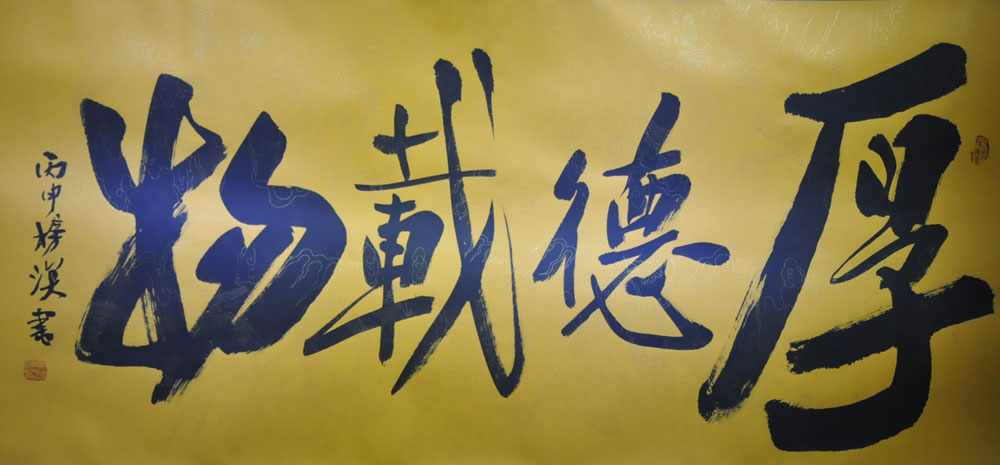 厚德載物
丙申 漢書